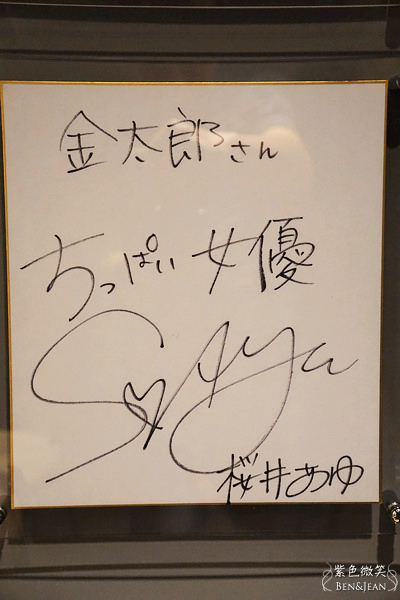 金太郎さん
ちっぱい女優
桜井あゆ
紫色微笑
BEN&JEAN